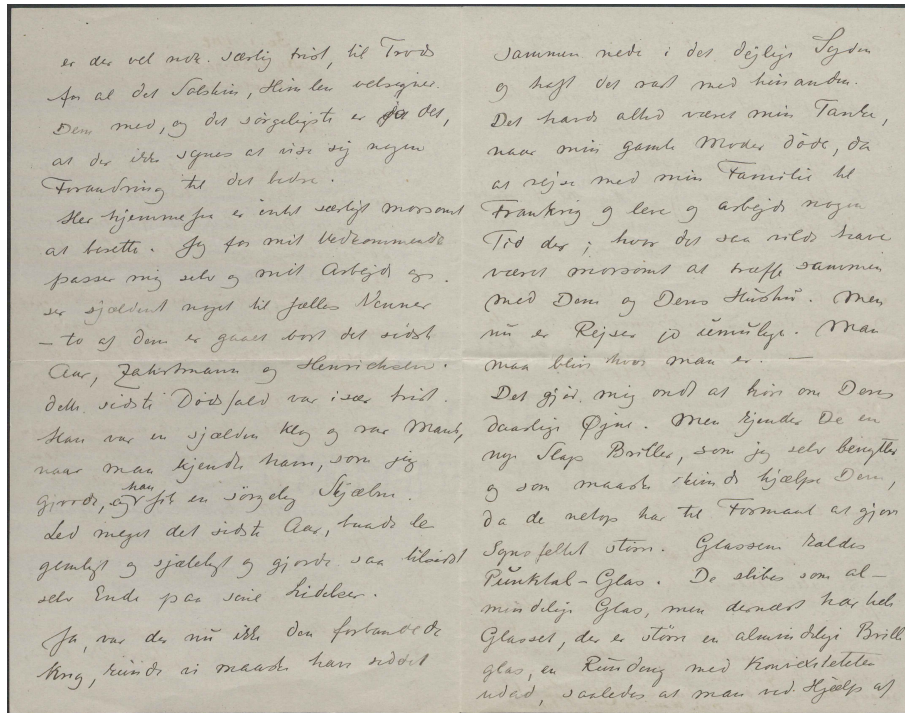 er der vel nok særlig trist, til Trods
for al det Solskin, Himlen velsigner
Dem med, og det sørgeligste er jo det,
at der ikke synes at vise sig nogen
Forandring til det bedre.
Her hjemme fra er intet særligt morsomt
at berette. Jeg for mit Vedkommende
passer mig selv og mit Arbejde og
ser sjældent noget til fælles Venner
– to af dem er gaaet bort det sidste
Aar, Zahrtmann og Henrichsen.
dette sidste Dødsfald var især trist.
Han var en sjælden klog og rar Mand,
naar man kjendte ham, som jeg
gjorde, og han fik en sørgelig Skjæbne.
Led meget det sidste Aar, baade le
gemligt og sjæleligt og gjorde saa tilsidst
selv Ende paa sine Lidelser.
Ja, var der nu ikke den forbandede
Krig, kunde vi maaske have siddet
sammen nede i det dejlige Syden
og haft det rart med hinanden.
Det havde altid været min Tanke,
naar min gamle Moder døde, da
at rejse med min Familie til
Frankrig og leve og arbejde nogen
Tid der; hvor det saa vilde have
været morsomt at træffe sammen
med Dem og Deres Hustru. Men
nu er Rejser jo umulige. Man
maa blive hvor man er. –
Det gjør mig ondt at høre om Deres
daarlige Øjne. Men kjender De en
ny Slags Briller, som jeg selv benytter
og som maaske kunde hjælpe Dem,
da de netop har til Formaal at gjøre
Synsfeltet større. Glassene kaldes
Punktal-Glas. De slibes som al-
mindelige Glas, men dernæst har hele
Glasset, der er større en almindelige Brille
glas, en Runding med Konvexiteten
udad, saaledes at man ved Hjælp af